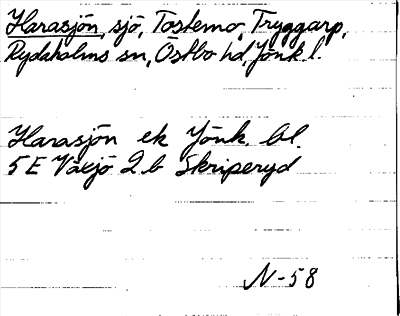 Harasjön, sjö, Tostemo, Tryggarp,
Rydaholms sn, Östbo hd, Jönk l.
Harasjön ek Jönk. bl.
5 E Växjö 2 b Skriperyd
N-58